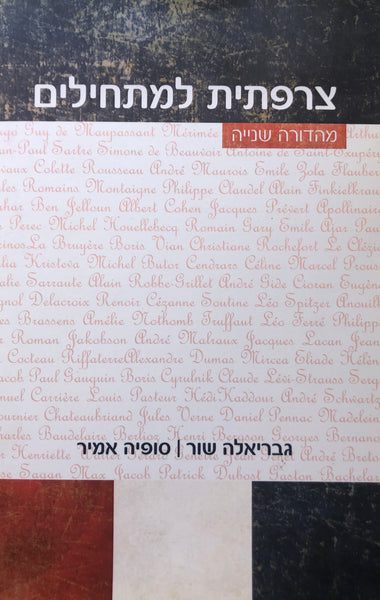 צרפתית למתחילים
מהדורה שנייה
Guy de Maupassant Mérimée Arthu
Paul Sartre Simone de Beauvoir Antoine de Saint-Exupéry
Colette Rousseau André Maurois Emile Zola Flauber
Romains Montaigne Philippe Claudel Alain Finkielkrau
Ben Jelloun Albert Cohen Jacques Prévert Apollinair
Perec Michel Houellebecq Romain Gary Emile Ajar Pau
La Bruyère Boris Vian Christiane Rochefort Le Clézi
Kristeva Michel Butor Cendrars Céline Marcel Prous
Sarraute Alain Robbe-Grillet André Gide Cioran Eugèn
Delacroix Renoir Cézanne Soutine Léo Spitzer Anouill
Brassens Amélie Nothomb Truffaut Léo Ferré Philipp
Roman Jakobson André Malraux Jacques Lacan Jean
Cocteau Riffaterre Alexandre Dumas Mircea Eliade Hélèn
Jacob Paul Gauguin Boris Cyrulnik Claude Lévi-Strauss Serg
Carrière Louis Pasteur Hédi Kaddour André Schwartz
Chateaubriand Jules Verne Daniel Pennac Madelein
Charles Baudelaire Berlioz Henri Bergson Georges Bernano
Henriette Walter Gérard Genette Jean Genet André Breton
Sagan Max Jacob Patrick Dubost Gaston Bachelar
גבריאלה שור | סופיה אמיר